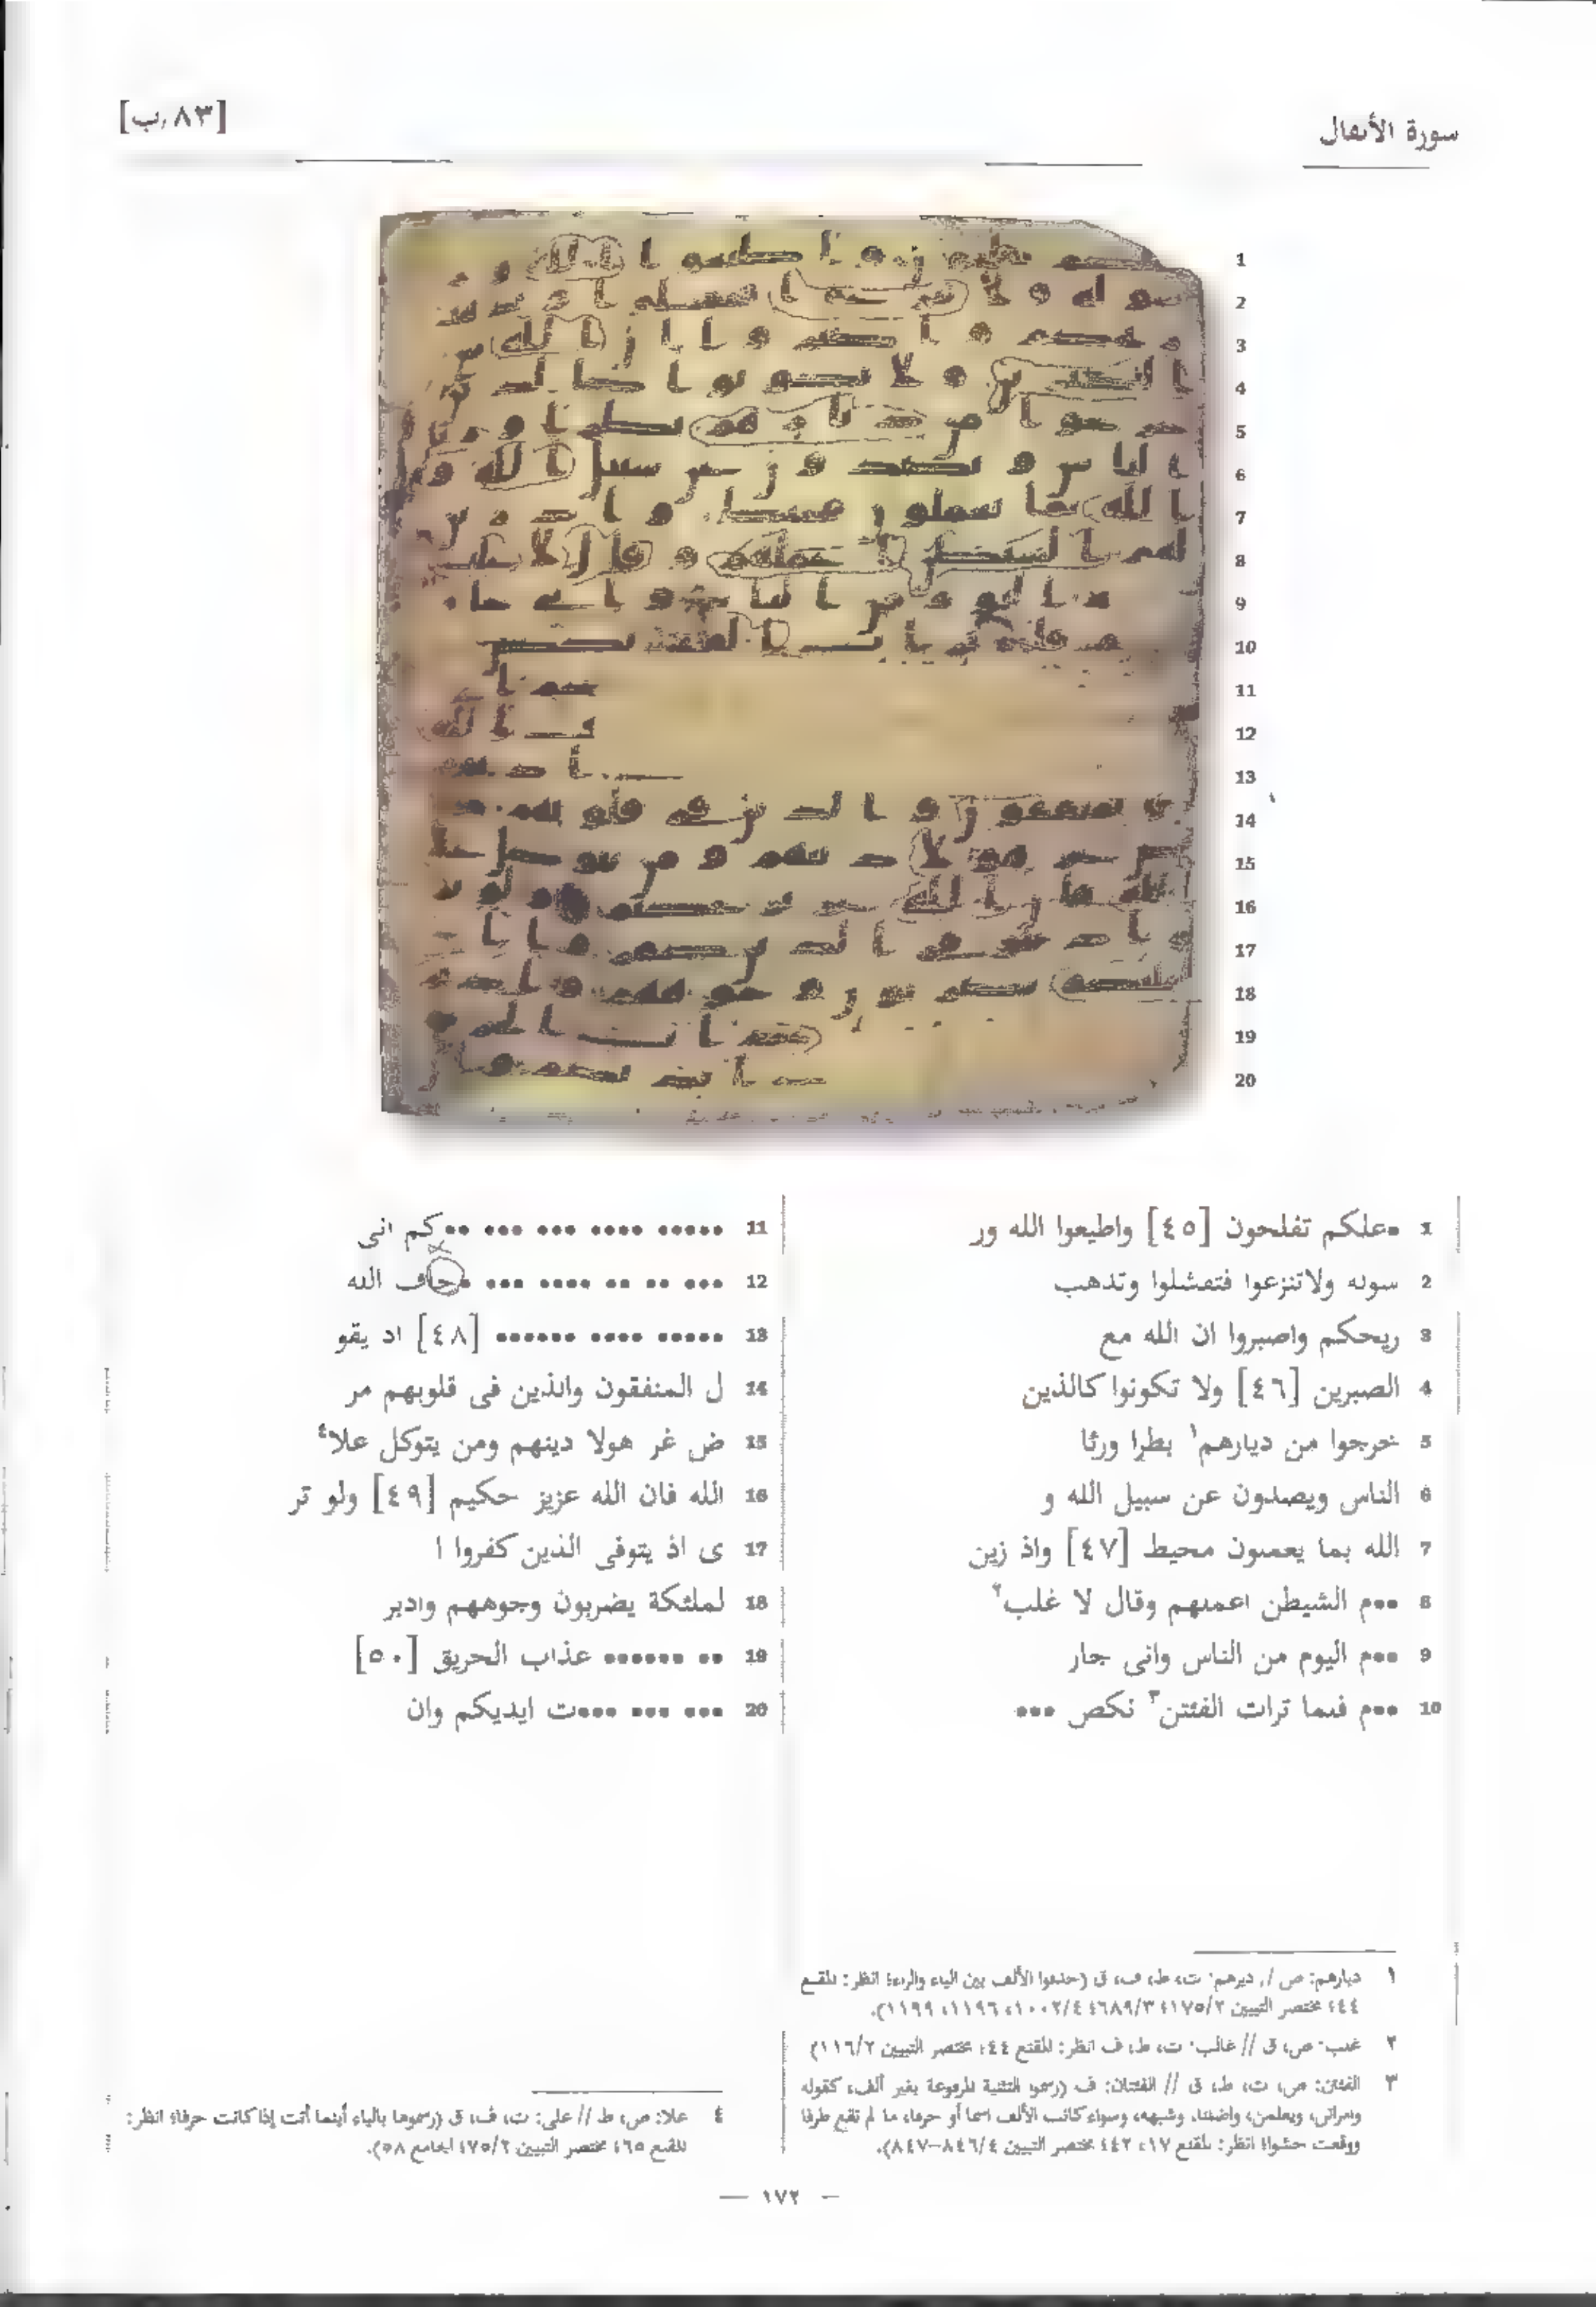 سورة الأنفال
[٨٣/ب]
1 •علكم تفلحون [٤٥] واطيعوا الله ور
2 سوله ولاتنزعوا فتفشلوا وتذهب
3 ريحكم واصبروا ان الله مع
4 الصبرين [٤٦] ولا تكونوا كالذين
5 خرجوا من ديارهم١ بطرا ورئا
6 الناس ويصدون عن سبيل الله و
7 الله بما يعملون محيط [٤٧] واذ زين
8 •••م الشيطن اعملهم وقال لا غلب٢
9 •••م اليوم من الناس وانى جار
10 •••م فلما ترات الفئتن٣ نكص •••
11 ••••• •••• ••• ••• ••كم انى
12 ••• •• •• •••• ••• •خاف الله
13 ••••• •••• •••••• [٤٨] اذ يقو
14 ل المنفقون والذين فى قلوبهم مر
15 ض غر هولا دينهم ومن يتوكل علا٤
16 الله فان الله عزيز حكيم [٤٩] ولو تر
17 ى اذ يتوفى الذين كفروا ا
18 لملئكة يضربون وجوههم وادبر
19 •• •••••• عذاب الحريق [٥٠]
20 ••• ••• ••••ت ايديكم وان
١ ديارهم: ص // ديرهم: ت، ط، ف، ق (حذفوا الألف بين الياء والراء؛ انظر: المقنع
٤٤؛ مختصر التبيين ١٧٥/٢؛ ٦٨٩/٣؛ ١٠٠٢/٤، ١١٩٦، ١١٩٩).
٢ غلب: ص، ق // غالب: ت، ط، ف انظر: المقنع ٤٤؛ مختصر التبيين ١١٦/٢)
٣ الفئتن: ص، ت، ط، ق // الفئتان: ف (رسموا التثنية المرفوعة بغير ألف، كقوله
وامراتن، ويعلمن، واضلنا، وشبهه، وسواء كانت الألف اسما أو حرفا، ما لم تقع طرفا
ووقعت حشوا؛ انظر: المقنع ١٧، ٤٤٢ مختصر التبيين ٨٤٦/٤–٨٤٧).
٤ علا: ص، ط // على: ت، ف، ق (رسموها بالياء أينما أتت إذا كانت حرفا؛ انظر:
المقنع ٦٥؛ مختصر التبيين ٧٥/٢؛ الجامع ٥٨).
— ١٧٢ —